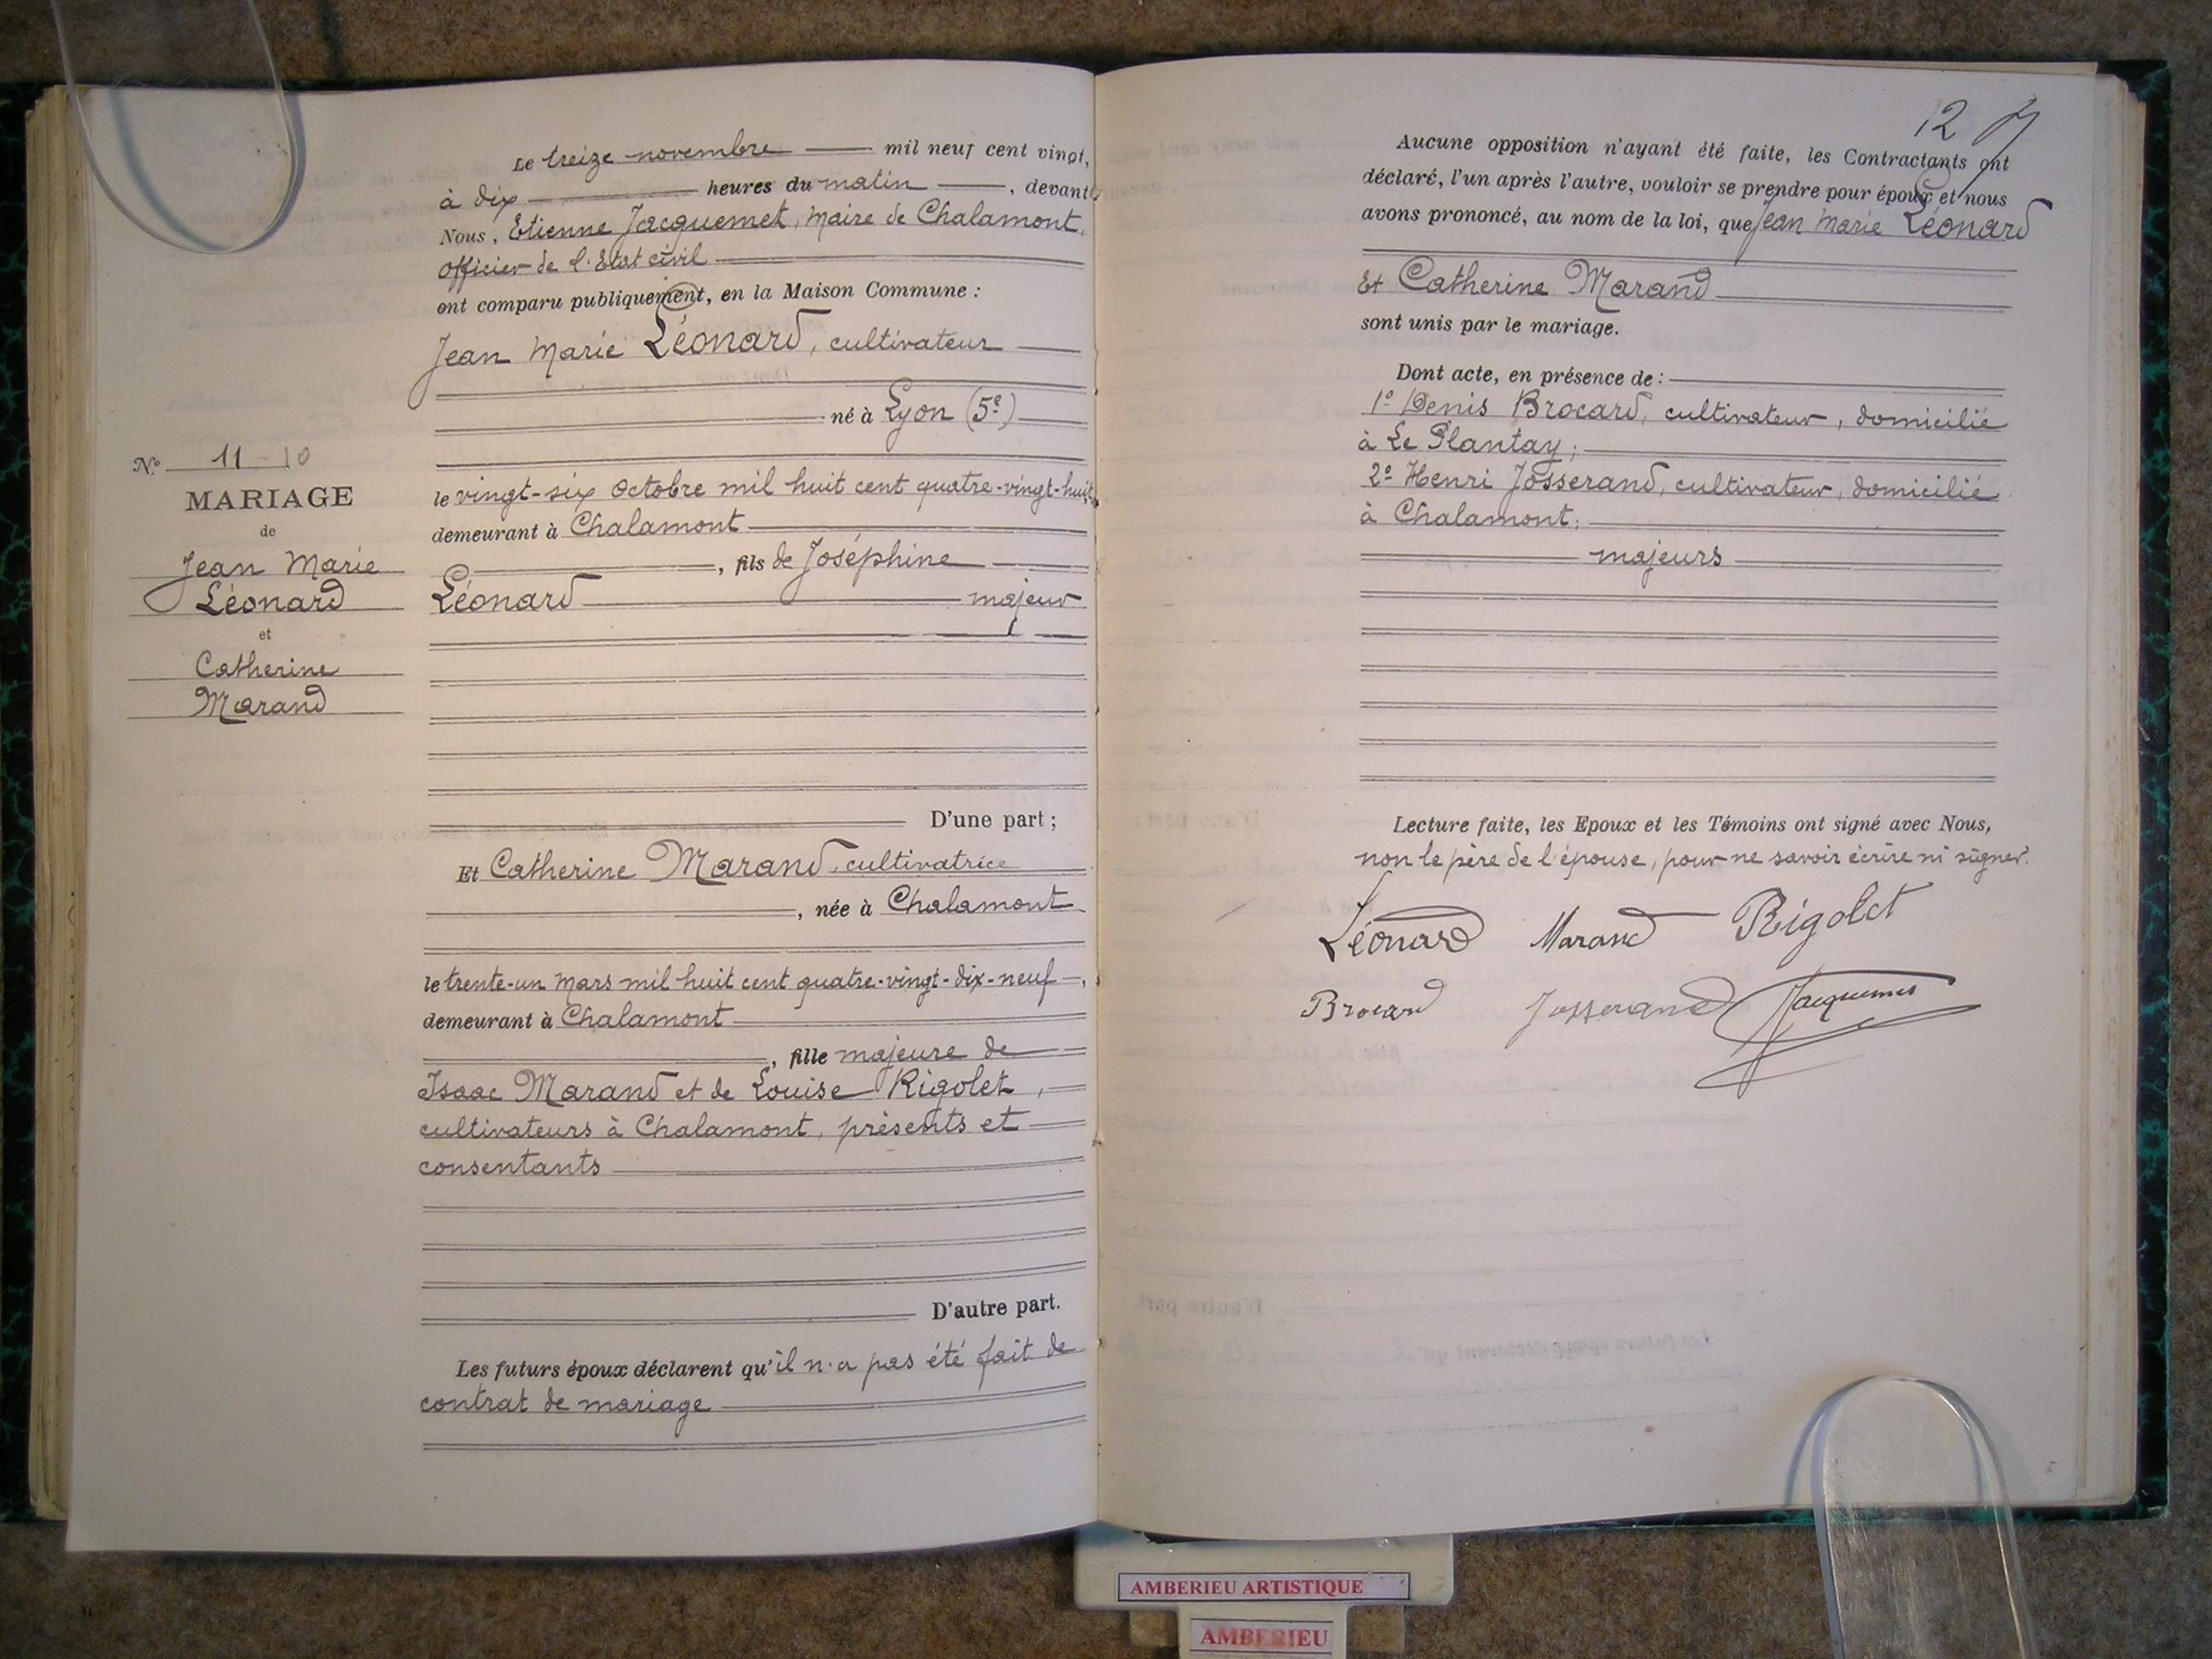 Le treize novembre mil neuf cent vingt,
à dix heures du matin, devant
Nous, Etienne Jacquemet, Maire de Chalamont,
officier de l'Etat civil
ont comparu publiquement, en la Maison Commune :
Jean Marie Léonard, cultivateur
né à Lyon (5e)
le vingt-six Octobre mil huit cent quatre-vingt-huit,
demeurant à Chalamont
, fils de Joséphine
Léonard majeur
N° 11 - 10
MARIAGE
de
Jean Marie
Léonard
et
Catherine
Marand
D'une part ;
Et Catherine Marand, cultivatrice
, née à Chalamont
le trente-un Mars mil huit cent quatre-vingt-dix-neuf,
demeurant à Chalamont
, fille majeure de
Isaac Marand et de Louise Rigolet,
cultivateurs à Chalamont, présents et
consentants
D'autre part.
Les futurs époux déclarent qu'il n'a pas été fait de
contrat de mariage
12
Aucune opposition n'ayant été faite, les Contractants ont
déclaré, l'un après l'autre, vouloir se prendre pour époux et nous
avons prononcé, au nom de la loi, que Jean Marie Léonard
Et Catherine Marand
sont unis par le mariage.
Dont acte, en présence de :
1° Denis Brocard, cultivateur, domicilié
à Le Plantay ;
2° Henri Josserand, cultivateur, domicilié
à Chalamont ;
majeurs
Lecture faite, les Epoux et les Témoins ont signé avec Nous,
non le père de l'épouse, pour ne savoir écrire ni signer.
Léonard Marand Rigolet
Brocard Josserand Jacquemet
AMBERIEU ARTISTIQUE
AMBERIEU